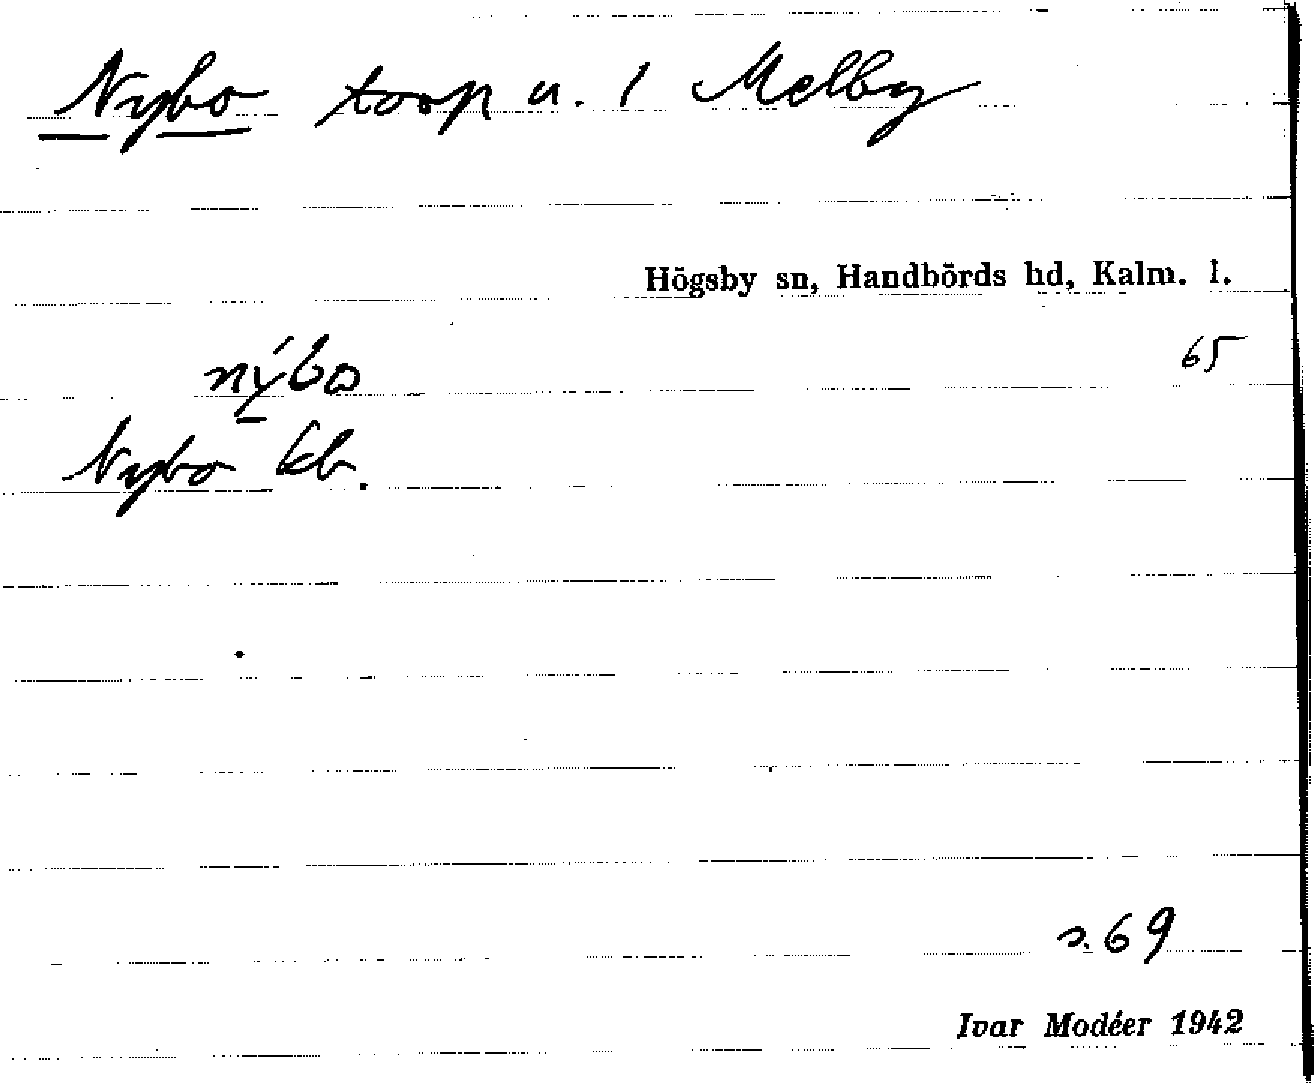 Nybo torp u. 1 Melby
Högsby sn, Handbörds hd, Kalm. l.
65
nýbo
Nybo kb.
s. 69
Ivar Modéer 1942